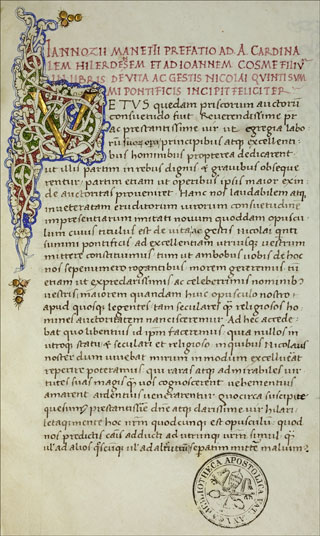 IANNOZII MANETII PREFATIO AD. A. CARDINA
LEM HILERDESEM ET AD IOANNEM COSME FILIV
IN LIBRIS DE VITA AC GESTIS NICOLAI QVINTI SVM
MI PONTIFICIS INCIPIT FELICITER
VETVS quedam priscorum auctorū
consuetudo fuit Reverendissime pr̄
ac prestantissime vir ut egregia labo
rū suorum principibus atq excellenti
bus hominibus propterea dedicarent
ut illi partim in rebus dignis & gravibus obseque
rentur partim etiam ut operibus ipsis maior exin
de auctoritas proveniret. Hanc nos laudabilem atq
inveteratam eruditorum virorum consuetudinē
impresentiarum imitati novum quoddam opuscu
lum cuius titulus est de vita ac gestis Nicolai qnti
summi pontificis ad excellentiam utriusq vestrum
mittere constituimus tum ut ambobus vobis de hoc
nos sepenumero rogantibus morem gereremus tū
etiam ut expredarissimis ac celeberrimis nominib
vestris maiorem quandam huic opusculo nostro
apud quosq legentes tam seculares q religiosos ho
mines auctoritatem nancisceremur. Ad hec accede
bat quo libentius id ipm faceremus quia nullos in
utroq statu & seculari et religioso in quibus Nicolaus
noster dum vivebat mirum in modum excelluerat
reperire poteramus qui raras atq admirabiles vir
tutes suas magis q vos cognoscerent vehementius
amarent ardentius venerarentur quocirca suscipite
quesumus prestantissime dne atq clarissime vir hilari
letaq mente hoc nrm quodcunq est opusculum quod
nos predictis cais adducti ad utrunq vrm simul q
ad alios separatim mitte maluim
BIBLIOTHECA APOSTOLICA VATICANA